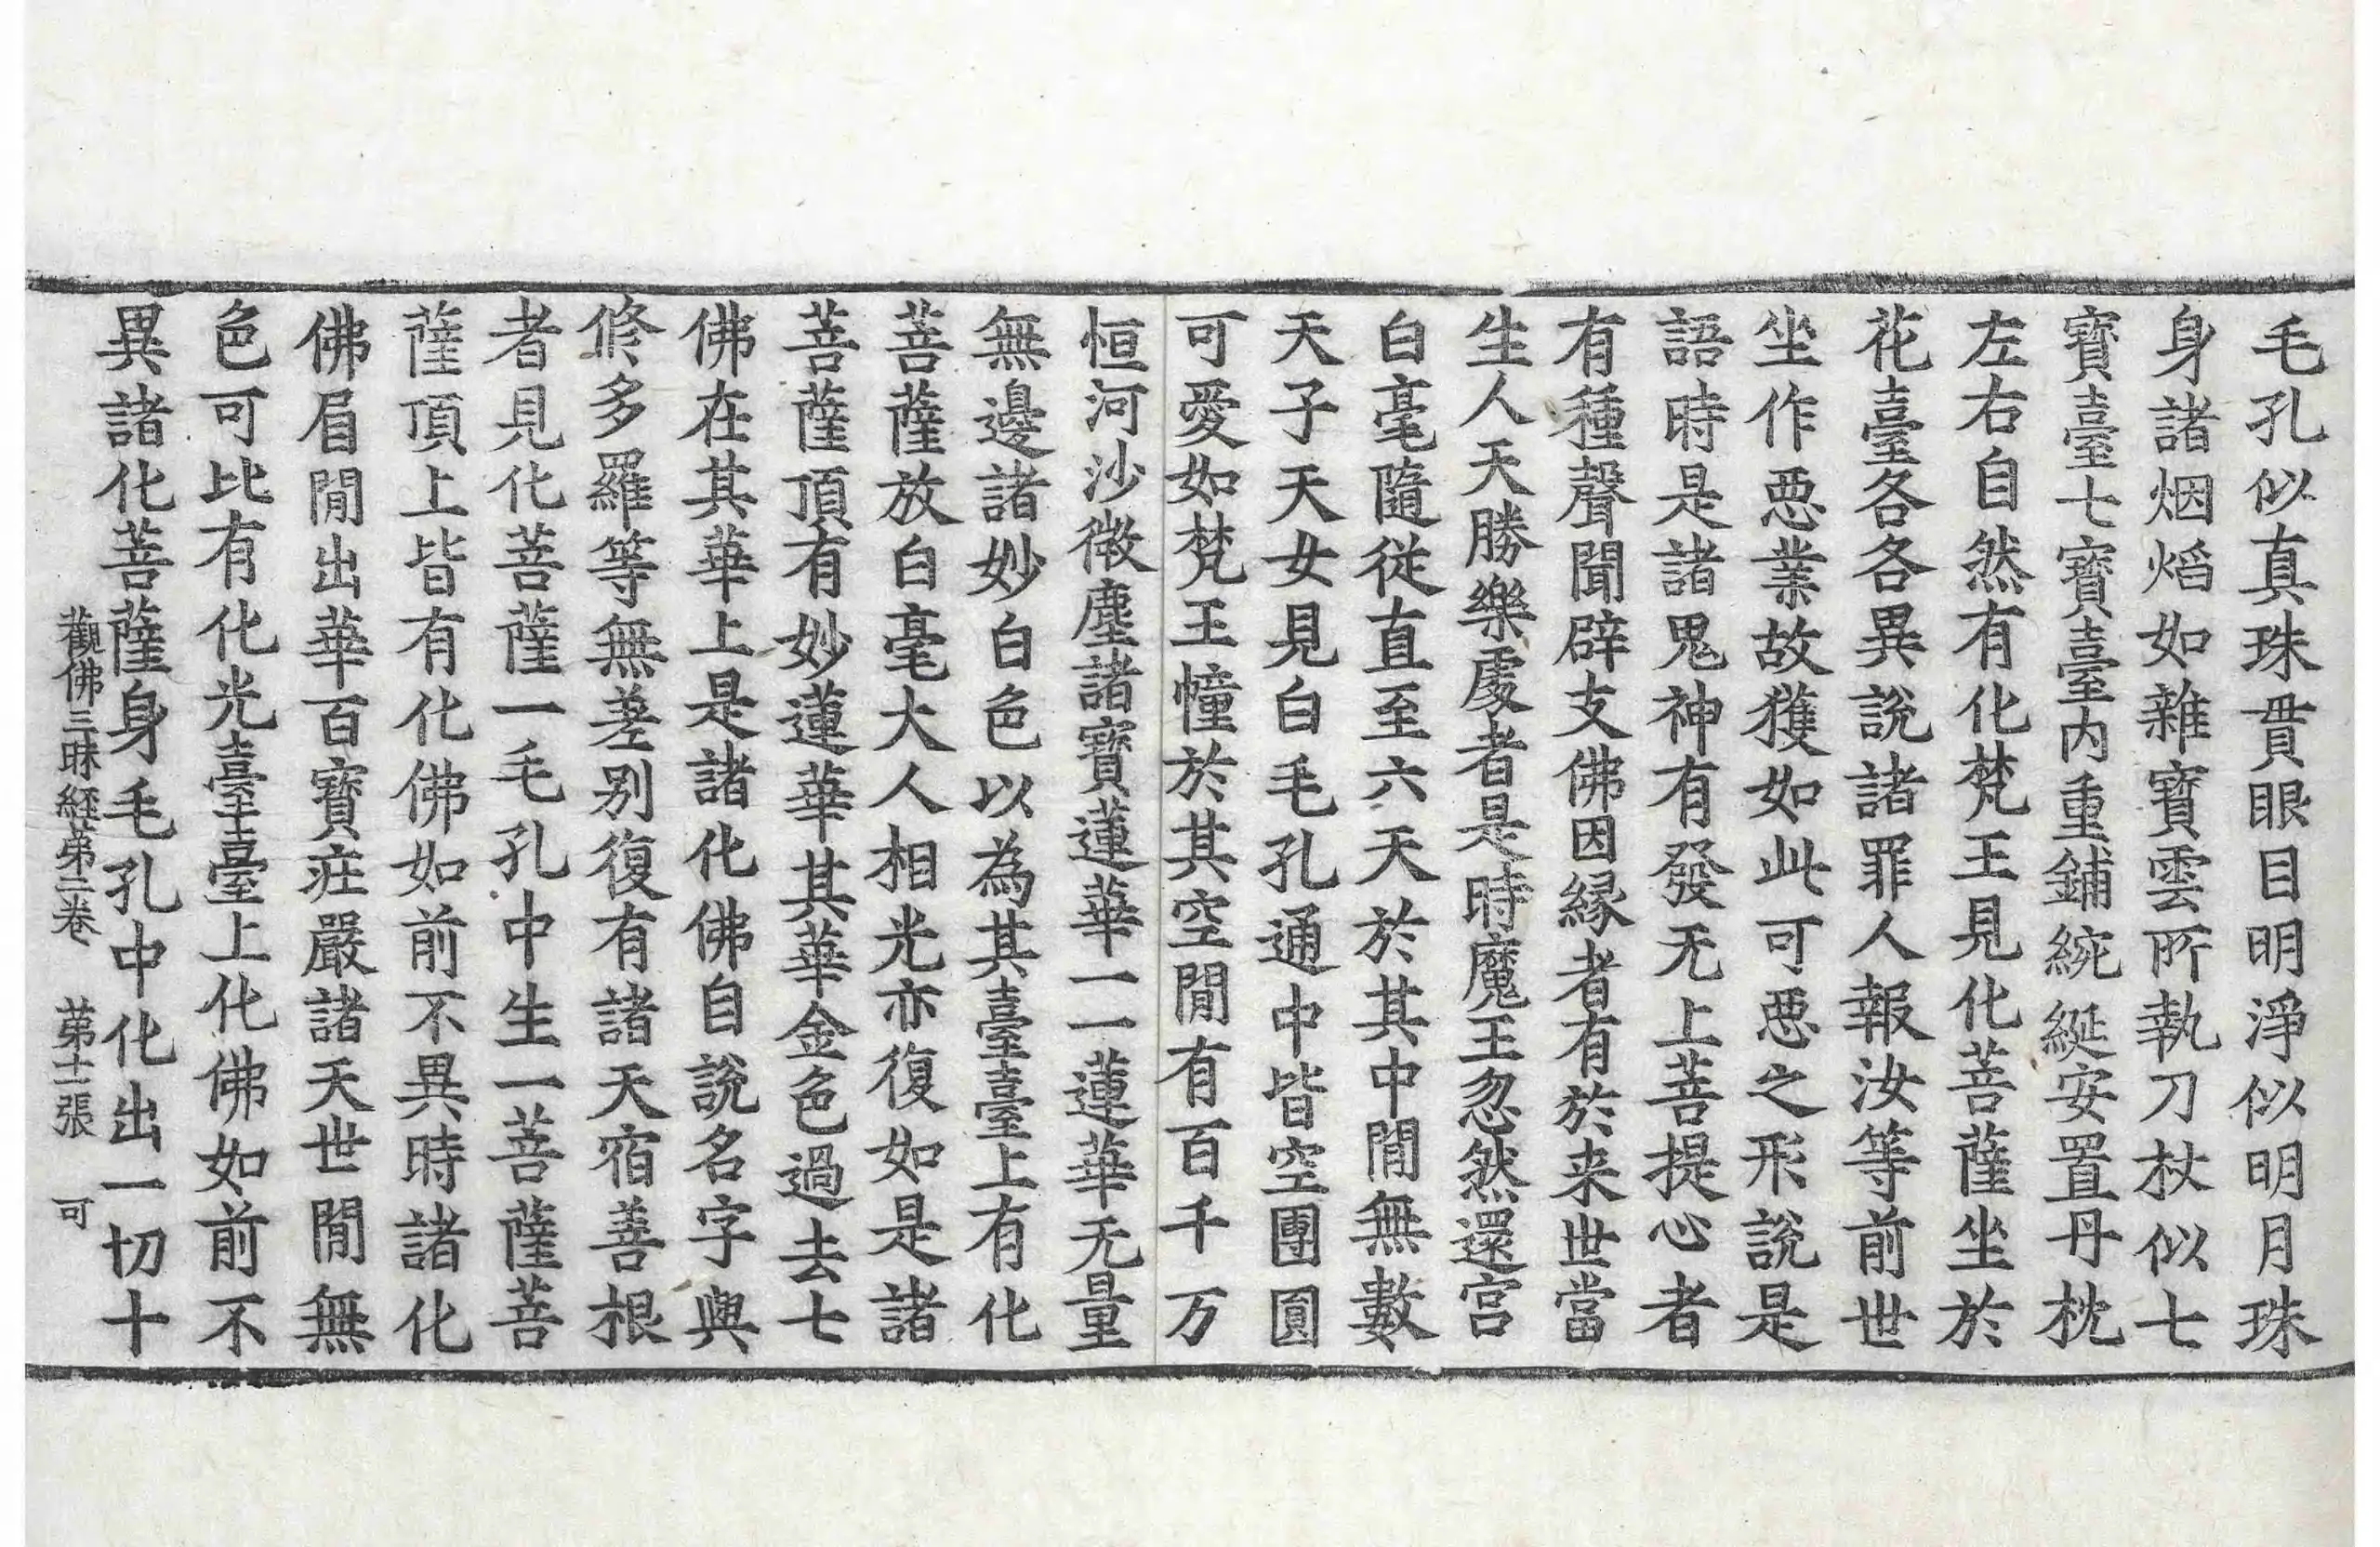 毛孔似真珠貫眼目明淨似明月珠
身諸烟焰如雜寶雲所執刀杖似七
寶臺七寶臺內重鋪綩綖安置丹枕
左右自然有化梵王見化菩薩坐於
花臺各各異說諸罪人報汝等前世
坐作惡業故獲如此可惡之形說是
語時是諸鬼神有發无上菩提心者
有種聲聞辟支佛因緣者有於来世當
生人天勝樂處者是時魔王忽然還宮
白毫隨從直至六天於其中間無數
天子天女見白毛孔通中皆空團圓
可愛如梵王幢於其空間有百千万
恒河沙微塵諸寶蓮華一一蓮華无量
無邊諸妙白色以為其臺臺上有化
菩薩放白毫大人相光亦復如是諸
菩薩頂有妙蓮華其華金色過去七
佛在其華上是諸化佛自說名字與
修多羅等無差别復有諸天宿善根
者見化菩薩一毛孔中生一菩薩菩
薩頂上皆有化佛如前不異時諸化
佛眉間出華百寶庄嚴諸天世間無
色可比有化光臺臺上化佛如前不
異諸化菩薩身毛孔中化出一切十
觀佛三昧經第二卷 第十二張 可